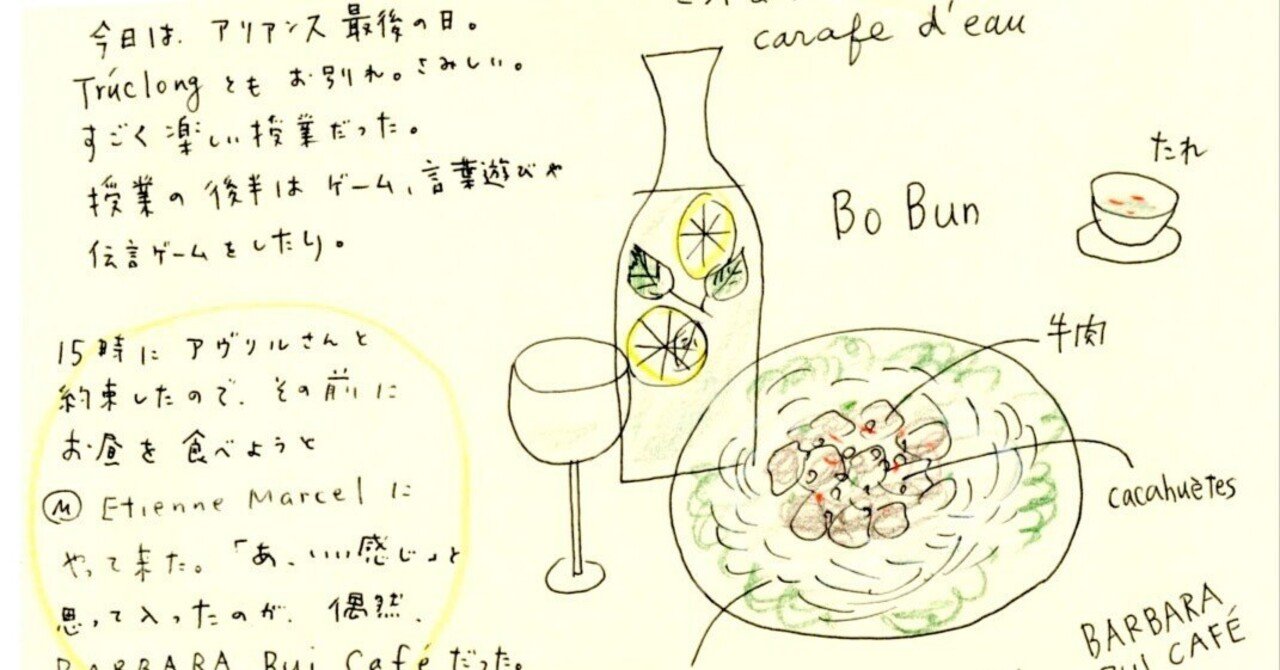 今日は、アリアンス最後の日。
Trúclongともお別れ。さみしい。
すごく楽しい授業だった。
授業の後半はゲーム、言葉遊びや
伝言ゲームをしたり。
15時にアヴリルさんと
約束したので、その前に
お昼を食べようと
Ⓜ Etienne Marcelに
やって来た。「あ、いい感じ」と
思って入ったのが、偶然、
BARBARA Bui Caféだった。
carafe d'eau
Bo Bun
たれ
牛肉
cacahuètes
BARBARA
BUI CAFÉ